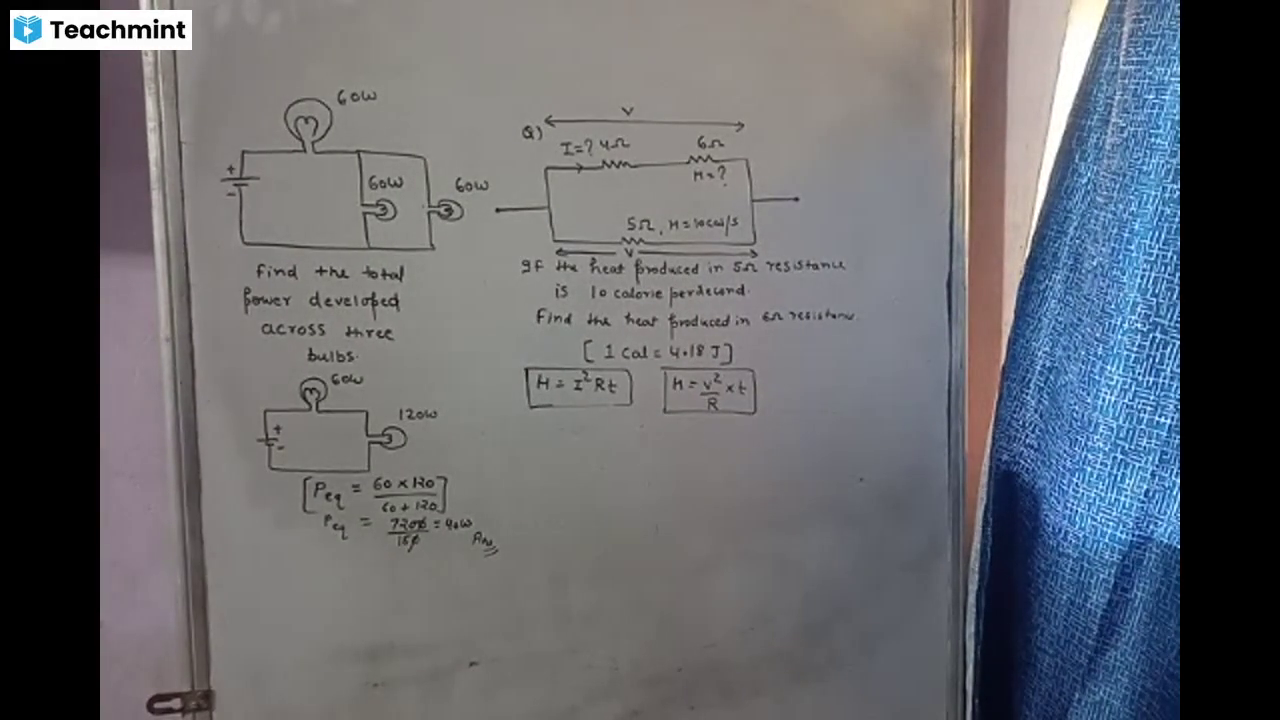 Teachmint
60W
60W
60W
+
-
Find the total
power developed
across three
bulbs.
60W
120W
+
-
[Peq = 60 × 120 / 60 + 120]
Peq = 7200 / 180 = 40W
Ans
Q)
V
I=? 4Ω
6Ω
H=?
5Ω, H=10cal/s
V
If the heat produced in 5Ω resistance
is 10 calorie perdecond.
Find the heat produced in 6Ω resistance.
[1 Cal = 4.18 J]
H = I² Rt
H = V²/R × t